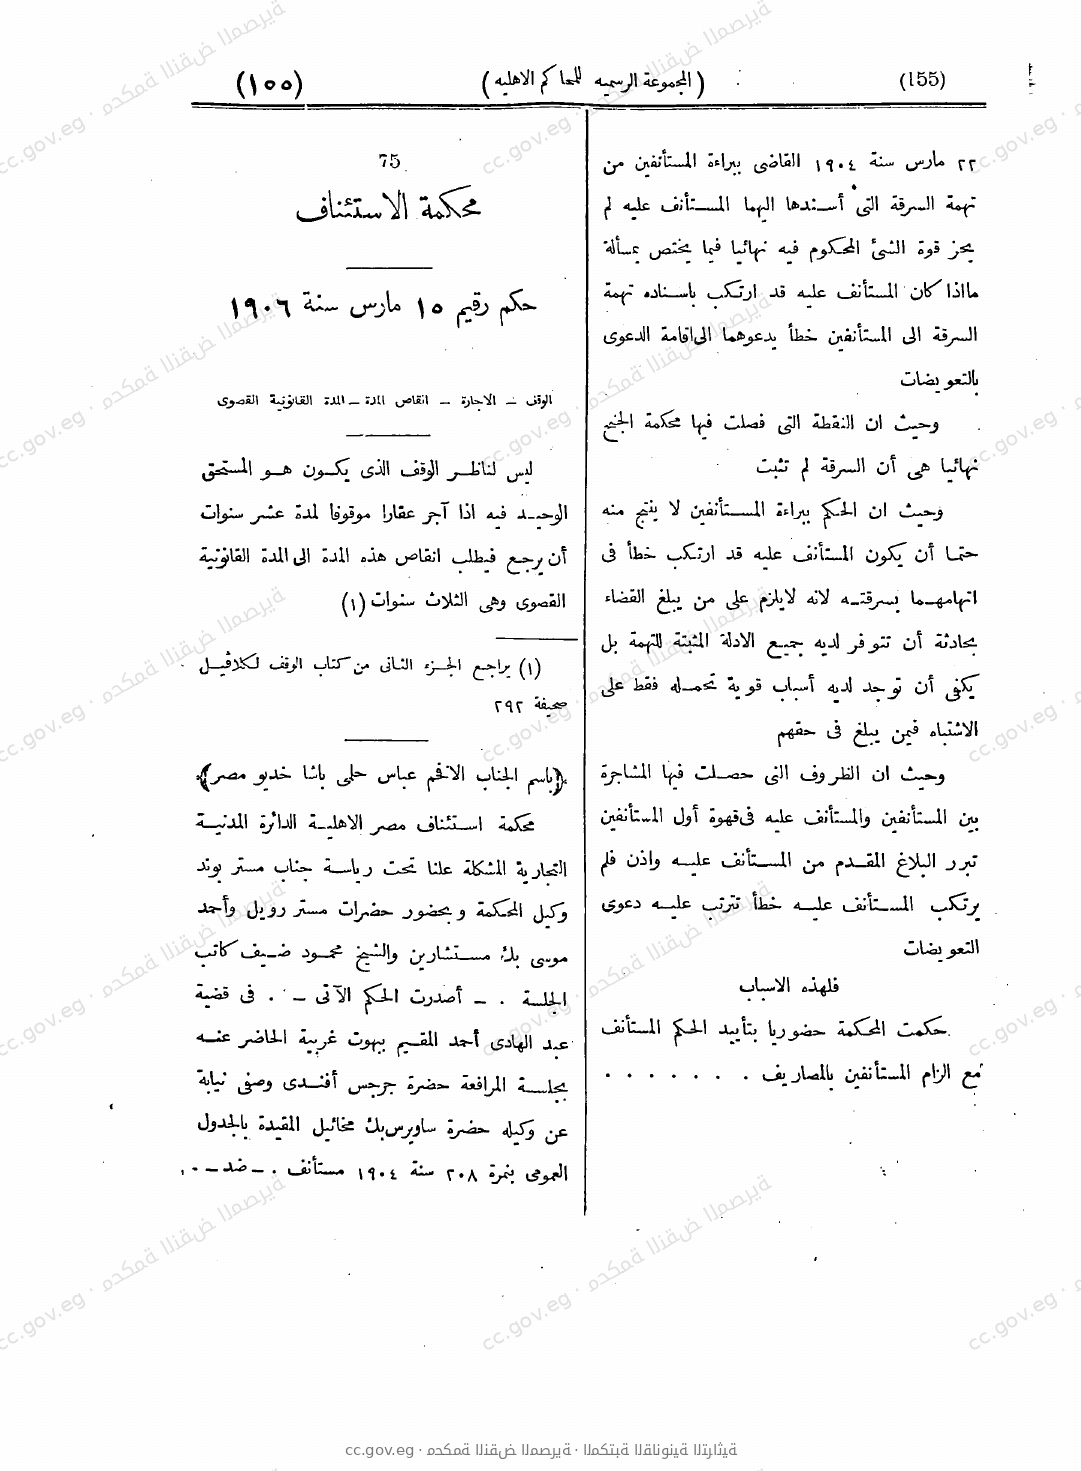 (155)
(المجموعة الرسميه للمحاكم الاهليه)
(١٥٥)
٢٢ مارس سنة ١٩٠٤ القاضى ببراءة المستأنفين من
تهمة السرقة التى أسندها اليهما المستأنف عليه لم
يحز قوة الشئ المحكوم فيه نهائيا فيما يختص بمسألة
مااذا كان المستأنف عليه قد ارتكب باسناده تهمة
السرقة الى المستأنفين خطأ يدعوهما الى اقامة الدعوى
بالتعويضات
وحيث ان النقطة التى فصلت فيها محكمة الجنح
نهائيا هى أن السرقة لم تثبت
وحيث ان الحكم ببراءة المستأنفين لا ينتج منه
حتما أن يكون المستأنف عليه قد ارتكب خطأ فى
اتهامهما بسرقته لانه لايلزم على من يبلغ القضاء
بحادثة أن تتوفر لديه جميع الادلة المثبتة للتهمة بل
يكفى أن توجد لديه أسباب قوية تحمله فقط على
الاشتباه فيمن يبلغ فى حقهم
وحيث ان الظروف التى حصلت فيها المشاجرة
بين المستأنفين والمستأنف عليه فى قهوة أول المستأنفين
تبرر البلاغ المقدم من المستأنف عليه واذن فلم
يرتكب المستأنف عليه خطأ تترتب عليه دعوى
التعويضات
فلهذه الاسباب
حكمت المحكمة حضوريا بتأييد الحكم المستأنف
مع الزام المستأنفين بالمصاريف . . . . . . .
75
محكمة الاستئناف
حكم رقيم ١٥ مارس سنة ١٩٠٦
الوقف – الاجارة – انقاص المدة – المدة القانونية القصوى
ليس لناظر الوقف الذى يكون هو المستحق
الوحيد فيه اذا آجر عقارا موقوفا لمدة عشر سنوات
أن يرجع فيطلب انقاص هذه المدة الى المدة القانونية
القصوى وهى الثلاث سنوات (١)
(١) يراجع الجزء الثانى من كتاب الوقف لكلاڤيل
صحيفة ٢٩٢
(باسم الجناب الافخم عباس حلمى باشا خديو مصر)
محكمة استئناف مصر الاهلية الدائرة المدنية
التجارية المشكلة علنا تحت رياسة جناب مستر بوند
وكيل المحكمة وبحضور حضرات مستر رويل وأحمد
موسى بك مستشارين والشيخ محمود ضيف كاتب
الجلسة . – أصدرت الحكم الآتى – . فى قضية
عبد الهادى أحمد المقيم ببهوت غربية الحاضر عنه
بجلسة المرافعة حضرة جرجس أفندى وصفى نيابة
عن وكيله حضرة ساويرس بك مخائيل المقيدة بالجدول
العمومى بنمرة ٢٠٨ سنة ١٩٠٤ مستأنف . – ضد – .
cc.gov.eg · محكمة النقض المصرية · المكتبة القانونية التراثية